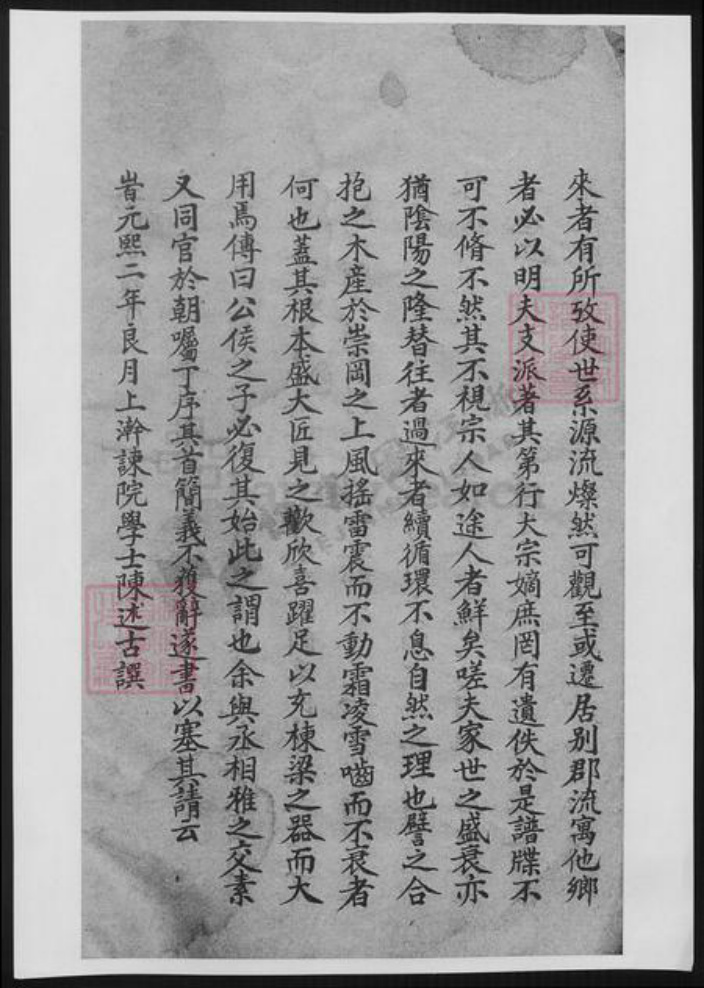 來者有所攷使世系源流燦然可觀至或遷居別郡流寓他鄉
者必以明夫支派著其第行大宗嫡庶罔有遺佚於是譜牒不
可不脩不然其不視宗人如途人者鮮矣嗟夫家世之盛衰亦
猶陰陽之隆替往者過來者續循環不息自然之理也譬之合
抱之木產於崇岡之上風搖雷震而不動霜凌雪嚙而不衰者
何也蓋其根本盛大匠見之歡欣喜躍足以充棟梁之器而大
用焉傳曰公侯之子必復其始此之謂也余與丞相雅之交素
又同官於朝囑丁序其首簡義不獲辭遂書以塞其請云
旹元熙二年良月上澣諫院學士陳述古譔